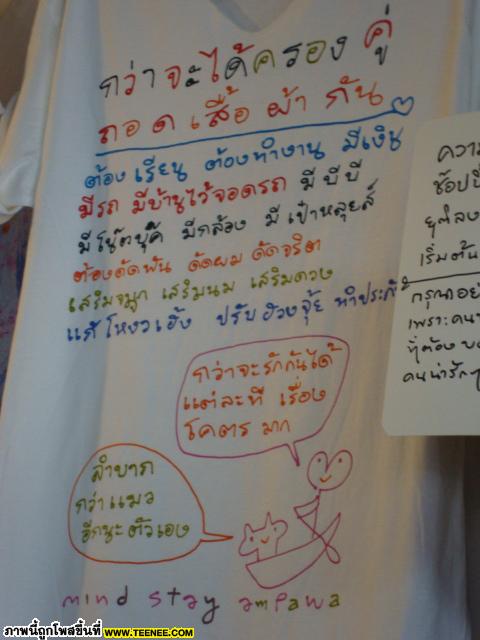 กว่าจะได้ครองคู่
ถอดเสื้อผ้ากัน
ต้องเรียน ต้องทำงาน มีเงิน
มีรถ มีบ้านไว้จอดรถ มีบีบี
มีโน๊ตบุ๊ค มีกล้อง มีเป๋าหลุยส์
ต้องดัดฟัน ดัดผม ดัดจริต
เสริมจมูก เสริมนม เสริมดวง
แก้โหงวเฮ้ง ปรับฮวงจุ้ย ทำประกั
กว่าจะรักกันได้
แต่ละที เรื่อง
โคตรมาก
ลำบาก
กว่าแมว
อีกนะตัวเอง
mind stay ampawa
ความ
ช๊อปปิ้
เริ่มต้น
กรุณาอย่
เพราะคน
ที่ต้อง
คนน่ารัก
ภาพนี้ถูกโพสขึ้นที่ www.TEENEE.com